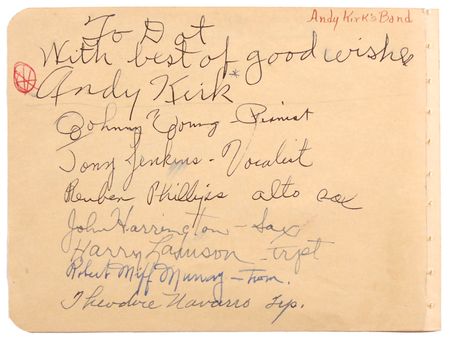 Andy Kirk's Band
To Dot
With best of good wishes
Andy Kirk
Johnny Young - Pianist
Tony Jenkins - Vocalist
Reuben Phillips alto sax
John Harrington - Sax
Harry Lawson - trpt
Robert Miff Murray - Trom.
Theodore Navarro Trp.